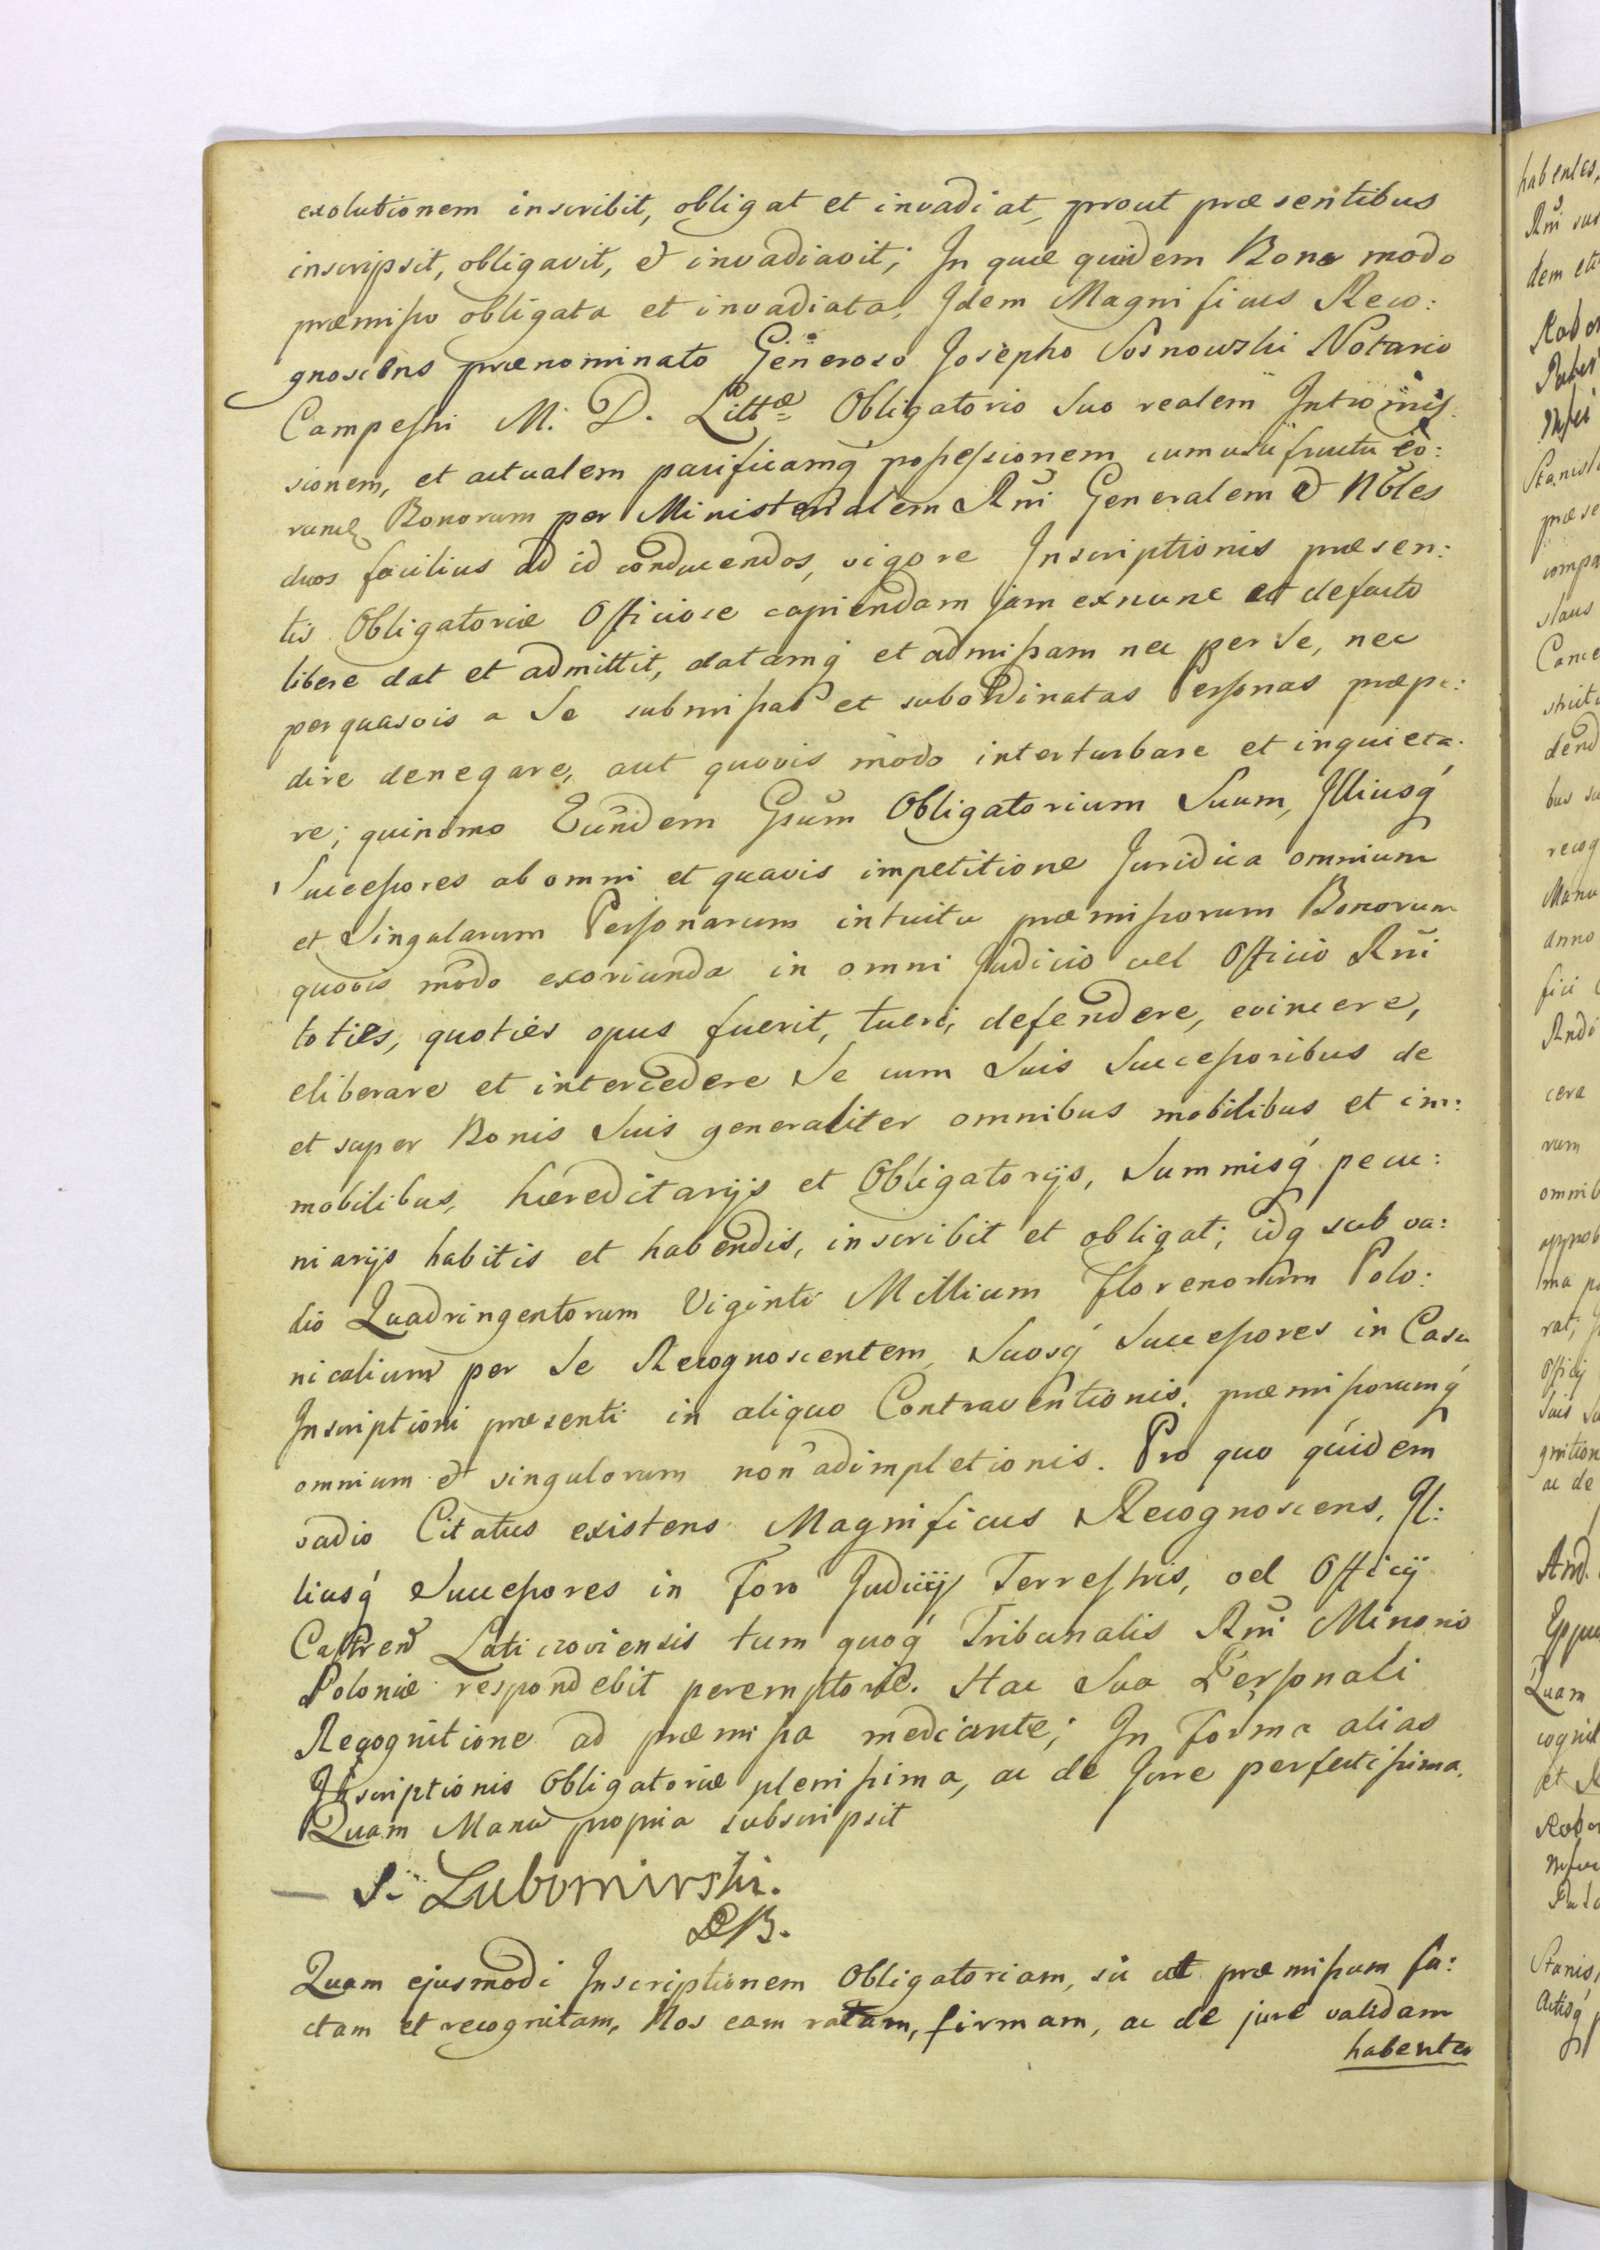 exolutionem inscribit, obligat et invadiat, prout præsentibus
inscripsit, obligavit, et invadiavit; In quæ quidem Bona modo
præmisso obligata et invadiata, Idem Magnificus Reco:
gnoscens prænominato Generoso Josepho Sosnowski Notario
Campestri M. D. Littæ Obligatorio Suo realem Intromis
sionem, et actualem pacificamq́ possessionem cum usufructu eo:
rundem Bonorum per Ministerialem Rñi Generalem et Nobles
duos facilius ad id conducendos, vigore Inscriptionis præsen:
tis Obligatoriæ Officiose capiendam jam exnunc et defacto
libere dat et admittit, datamq́ et admissam nec per Se, nec
per quasvis a Se submissas et subordinatas Personas præpe:
dire denegare, aut quovis modo interturbare et inquieta:
re; quinimo Eundem Gsum Obligatorium Suum, Illiusq́
Successores ab omni et quavis impetitione Juridica omnium
et Singularum Personarum intuitu præmissorum Bonorum
quovis modo exoriunda in omni Judicio vel Officio Rñi
toties, quoties opus fuerit, tueri, defendere, evincere,
eliberare et intercedere Se cum Suis Successoribus de
et super Bonis Suis generaliter omnibus mobilibus et im:
mobilibus, hæreditarijs et Obligatorijs, Summisq́ pecu:
niarijs habitis et habendis, inscribit et obligat; idq sub va:
dio Quadringentorum Viginti Millium Florenorum Polo:
nicalium per Se Recognoscentem, Suosq́ Successores in Casu
Inscriptioni præsenti in aliquo Contraventionis, præmissorumq́
omnium et singulorum non adimpletionis. Pro quo quidem
vadio Citatus existens Magnificus Recognoscens, Il:
liusq́ Successores in Foro Judicij Terrestris, vel Officij
Castren Laticzoviensis tum quoq́ Tribunalis Rñi Minoris
Poloniæ respondebit peremptorie. Hac Sua Personali
Recognitione ad præmissa mediante; In Forma alias
Inscriptionis Obligatoriæ plenissima, ac de Jure perfectissima.
Quam Manu propria subscripsit
— S. Lubomirski.
Quam ejusmodi Inscriptionem Obligatoriam, sic ut præmissum fa:
ctam et recognitam, Nos eam ratam, firmam, ac de jure validam
habentes